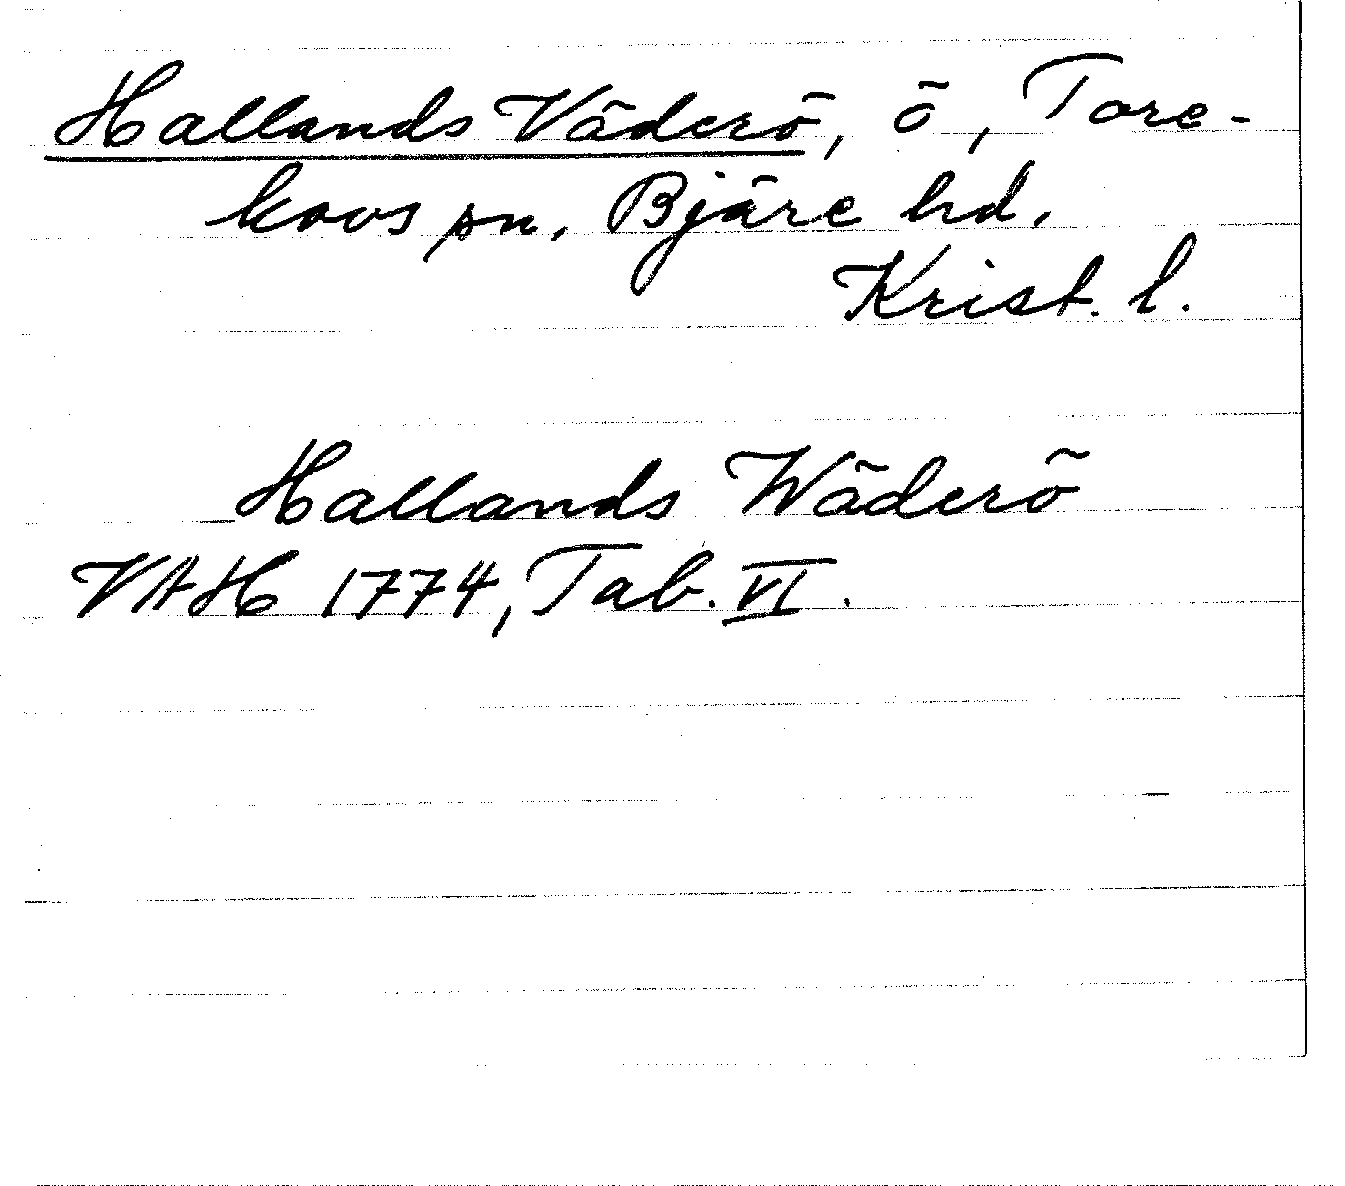 Hallands Väderö, ö, Tore-
kovs sn. Bjäre hd.
Krist. l.
Hallands Wäderö
VAH 1774, Tab. VI.